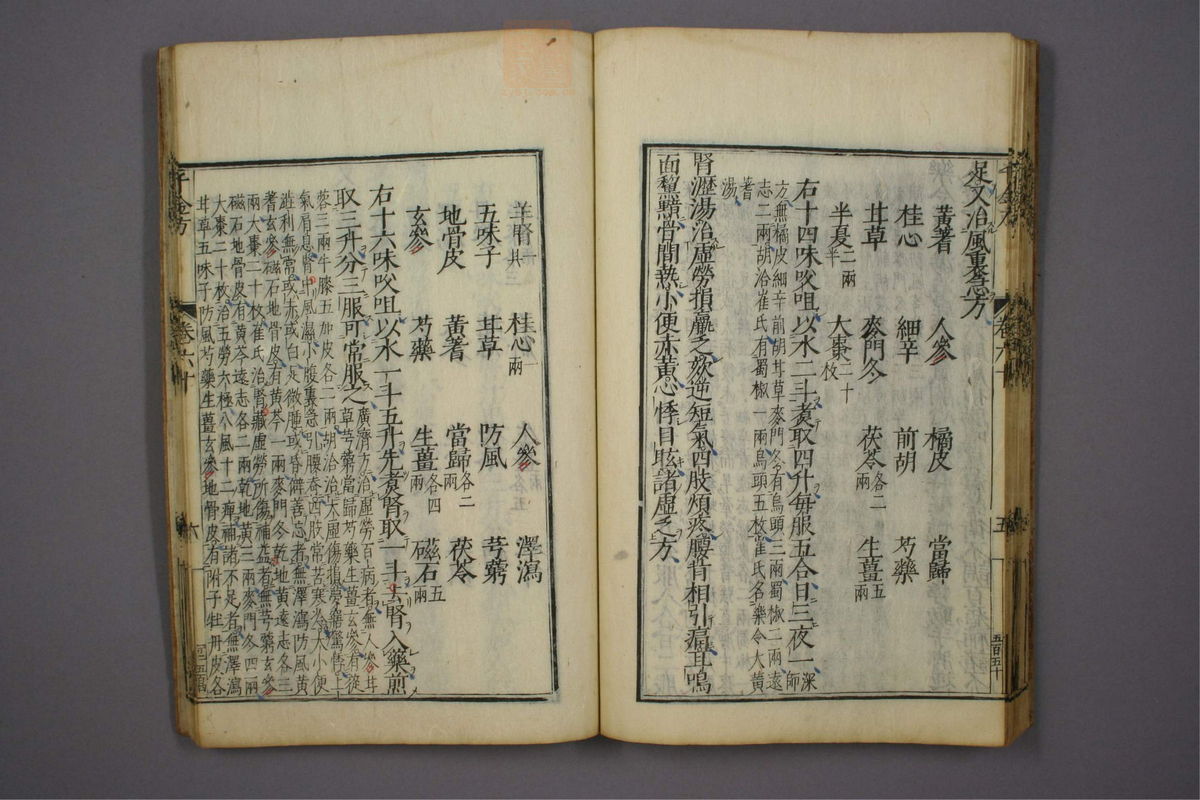 足又治風裏急方
黃耆 人參 橘皮 當歸
桂心 細辛 前胡 芍藥
茸草 麥門冬 茯苓各二兩 生薑五兩
半夏二兩半 大棗二十枚
右十四味㕮咀以水二斗煮取四升每服五合日三夜一深師
方無橘皮細辛前胡茸草麥門冬有烏頭三兩蜀椒二兩遠
志二兩胡洽崔氏有蜀椒一兩烏頭五枚崔氏名藥令大黃
耆湯
腎瀝湯治虛勞損羸乏欬逆短氣四肢煩疼腰背相引痛耳鳴
面黧黯骨間熱小便赤黃心悸目眩諸虛乏方
千金方 卷六十 五
五百五十
羊腎一具 桂心一兩 人參 澤瀉
五味子 茸草 防風 芎藭
地骨皮 黃耆 當歸各二兩 茯苓
玄參 芍藥 生薑各四兩 磁石五兩
右十六味㕮咀以水一斗五升先煮腎取一斗去腎入藥煎
取三升分三服可常服之廣濟方治虛勞百病者無人參茸
草芎藭當歸芍藥生薑玄參有蓯
蓉三兩牛膝五加皮各二兩胡洽治大虛傷損夢寤驚悸上
氣肩息腎中風濕小腹裏急引腰脊四肢常苦寒冷大小便
澁利無常或赤或白足微腫或昏僻善忘者無澤瀉防風黃
耆玄參磁石地骨皮有黃芩一兩麥門冬乾地黃遠志各三
兩大棗二十枚崔氏治腎藏虛勞所傷補益者無芎藭玄參
磁石地骨皮有黃芩遠志各二兩乾地黃三兩麥門冬四兩
大棗二十枚治五勞六極八風十二痺補諸不足者無澤瀉
茸草五味子防風芍藥生薑玄參地骨皮有附子牡丹皮各
千金方 卷六十 六